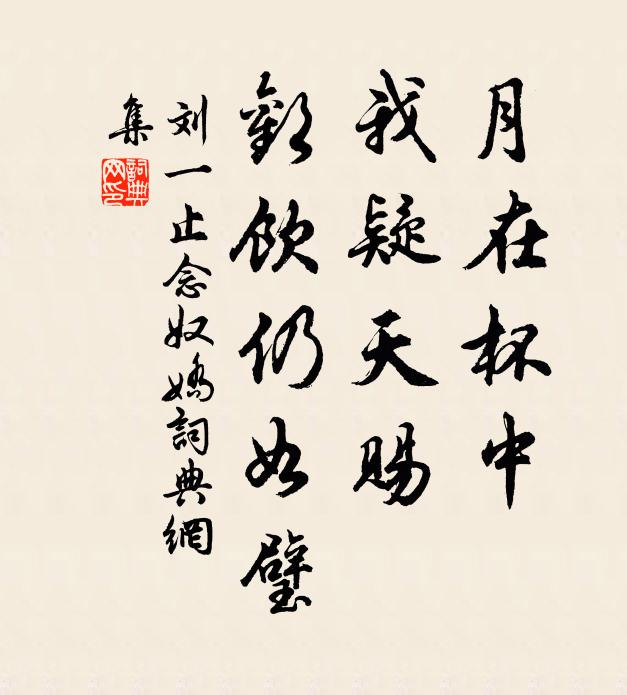 月在杯中
我疑天赐
劝饮仍如璧
刘一止念奴娇詞典網
集
詞典网印